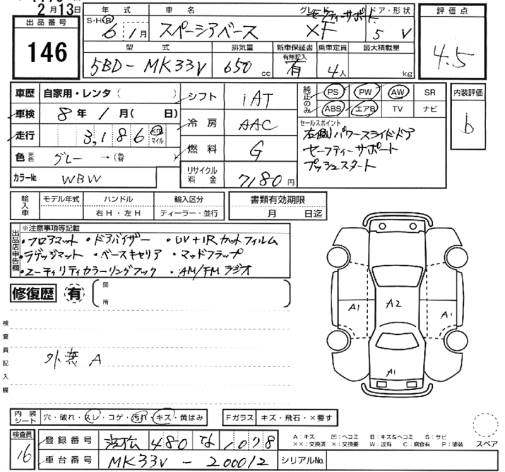 2月13日
出品番号 146
年式 S・H(R) 6年 1月
車名 スペーシアベース
グレード セーフティーサポート XF
ドア・形状 5 V
評価点 4.5
型式 5BD-MK33V
排気量 650 cc
新車保証書 有無記入 有
乗車定員 4人
最大積載量 kg
車歴 自家用・レンタ( )
車検 8年 1月( 日)
走行 3,186 マイル
色 グレー →(替 )
カラーNo. WBW
シフト iAT
冷房 AAC
燃料 G
リサイクル料金 7180円
純正のみ PS PW AW SR
ABS エアB TV ナビ
内装評価 b
セールスポイント
左側パワースライドドア
セーフティーサポート
プッシュスタート
輸入車 モデル年式 ハンドル 輸入区分
年 右H・左H ディーラー・並行
書類有効期限
月 日迄
出品店申告欄 ※注意事項等記載
・フロアマット ・ドアバイザー ・UV+IRカットフィルム
・ラゲッジマット ・ベースキャリア ・マッドフラップ
・ユーティリティカラーリングフック ・AM/FMラジオ
修復歴 有 箇所
検査員記入欄
外装 A
A1 A2 A1
A1
内装シート 穴・破れ・スレ・コゲ・汚れ・キズ・黄ばみ
Fガラス キズ・飛石・×要す
検査員 16
登録番号 480 な 1078
車台番号 MK33V-200012
シリアルNo.
A:キズ U:凹ヘコミ B:キズ&ヘコミ S:サビ
××:交換済 ×:要交換 W:波有 C:腐食有 P:塗装
スペア